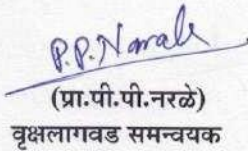 P.P.Narale
(प्रा.पी.पी.नरळे)
वृक्षलागवड समन्वयक